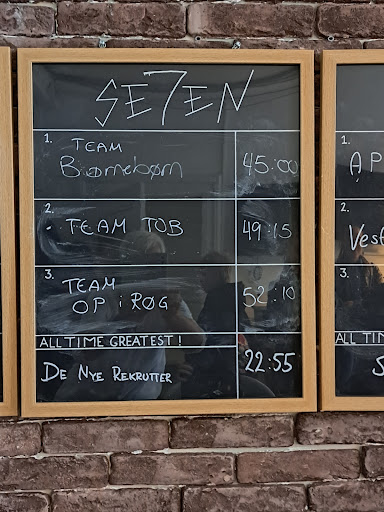 SE7EN
1. TEAM
Bjørnebørn 45:00
2. TEAM TOB 49:15
3. TEAM
OP i RØG 52:10
ALL TIME GREATEST!
DE NYE REKRUTTER 22:55
1.
AP
2.
Vest
3.
ALL TIM
S